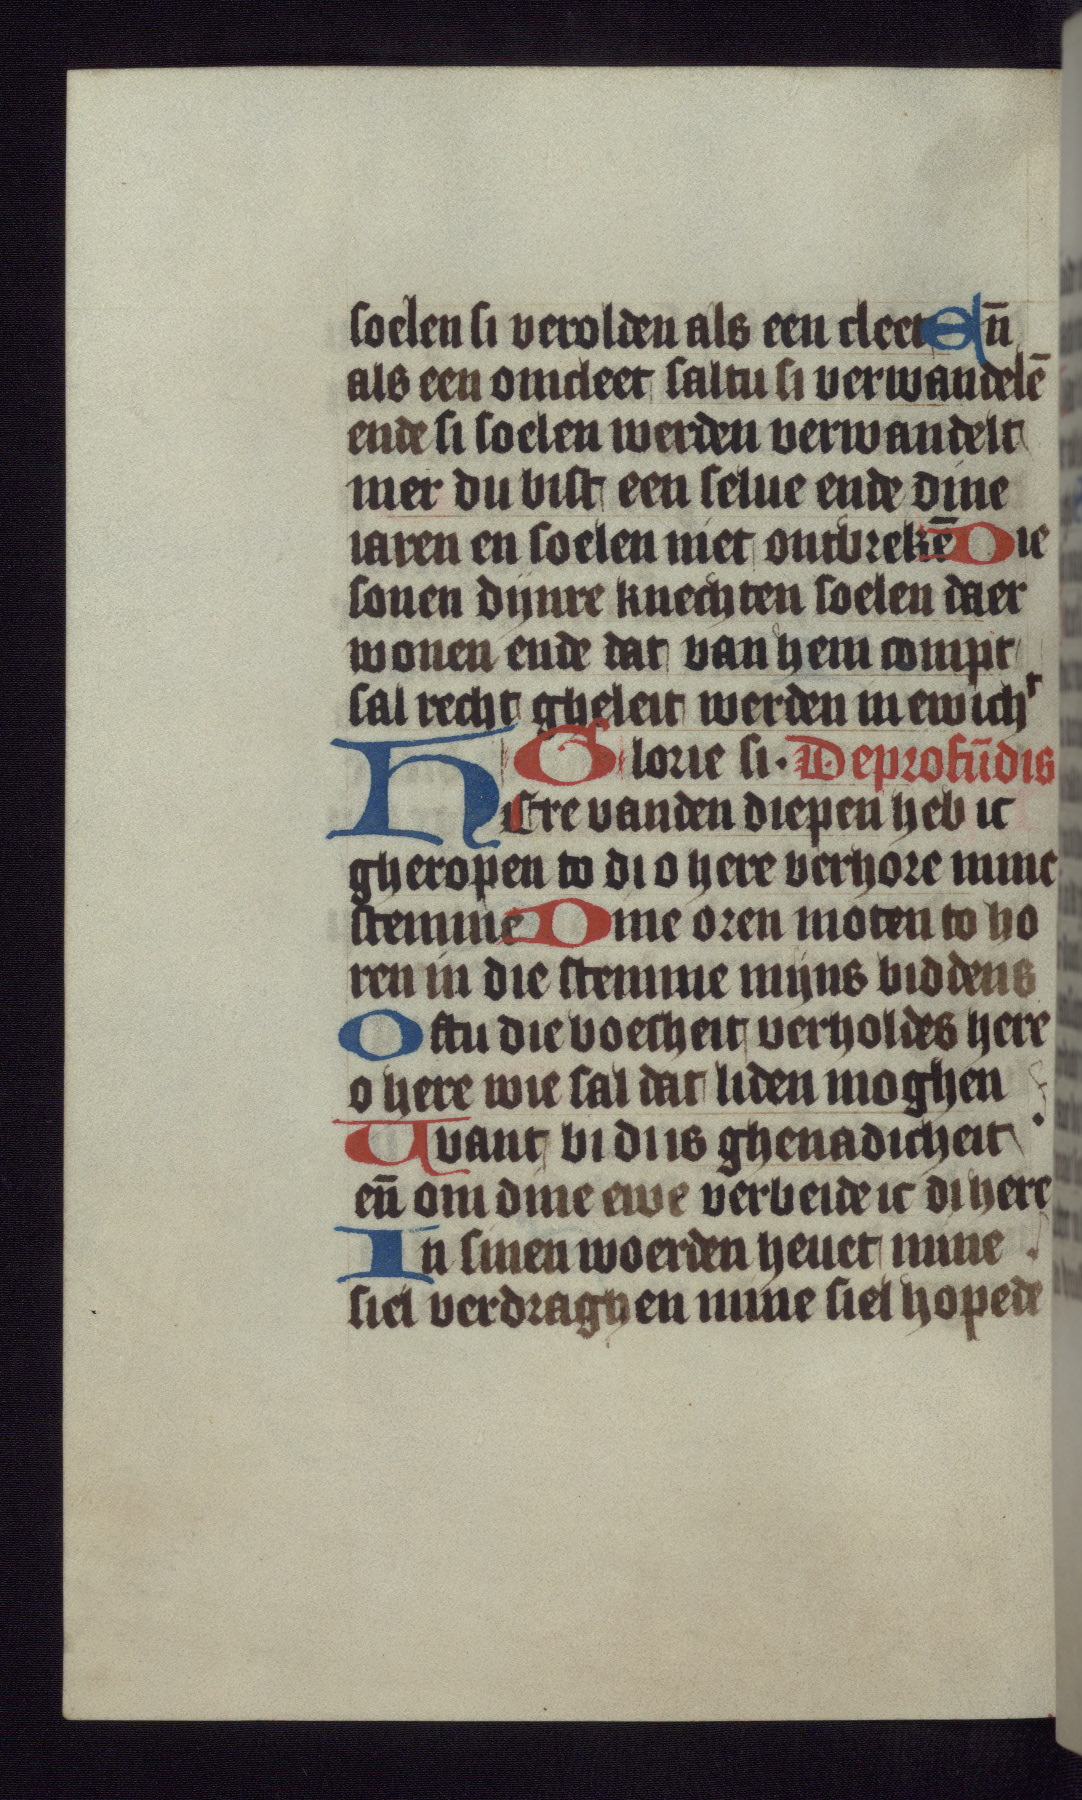 soelen si verolden als een cleet En̄
als een omcleet saltu si verwandelē
ende si soelen werden verwandelt
mer du bist een selue ende dine
iaren en soelen niet ontbrekē Die
sonen dijnre knechten soelen daer
wonen ende dat van hem compt
sal recht gheleit werden in ewichᵗ
Glorie si. De profūdis
HEre vanden diepen heb ic
gheropen to di o here verhore mine
stemme Dine oren moten to ho
ren in die stemme mijns biddens
Ostu die boesheit verholdes here
o here wie sal dat liden moghen
Uvant bi di is ghenadicheit
en̄ om dine ewe verbeide ic di here
In sinen woerden heuet mine
siel verdraghen mine siel hopede